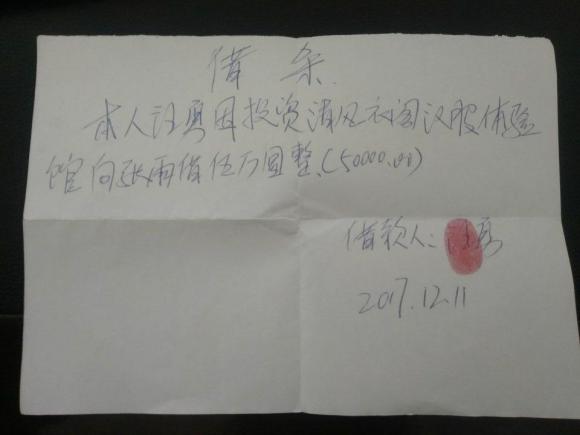 借条
本人汪勇因投资清风衣阁汉服体验
馆向张雨借伍万圆整.(50000.00)
借款人:汪勇
2017.12.11